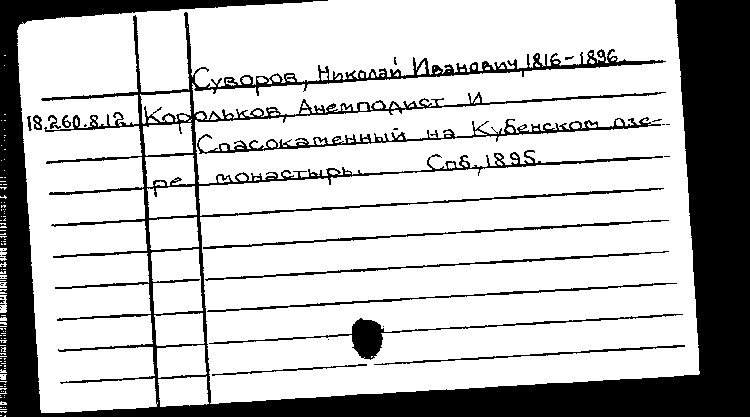 Суворов, Николай Иванович, 1816-1896.
18.260.8.12. Корольков, Анемподист И
Спасокаменный на Кубенском озе-
ре монастырь. Спб., 1895.